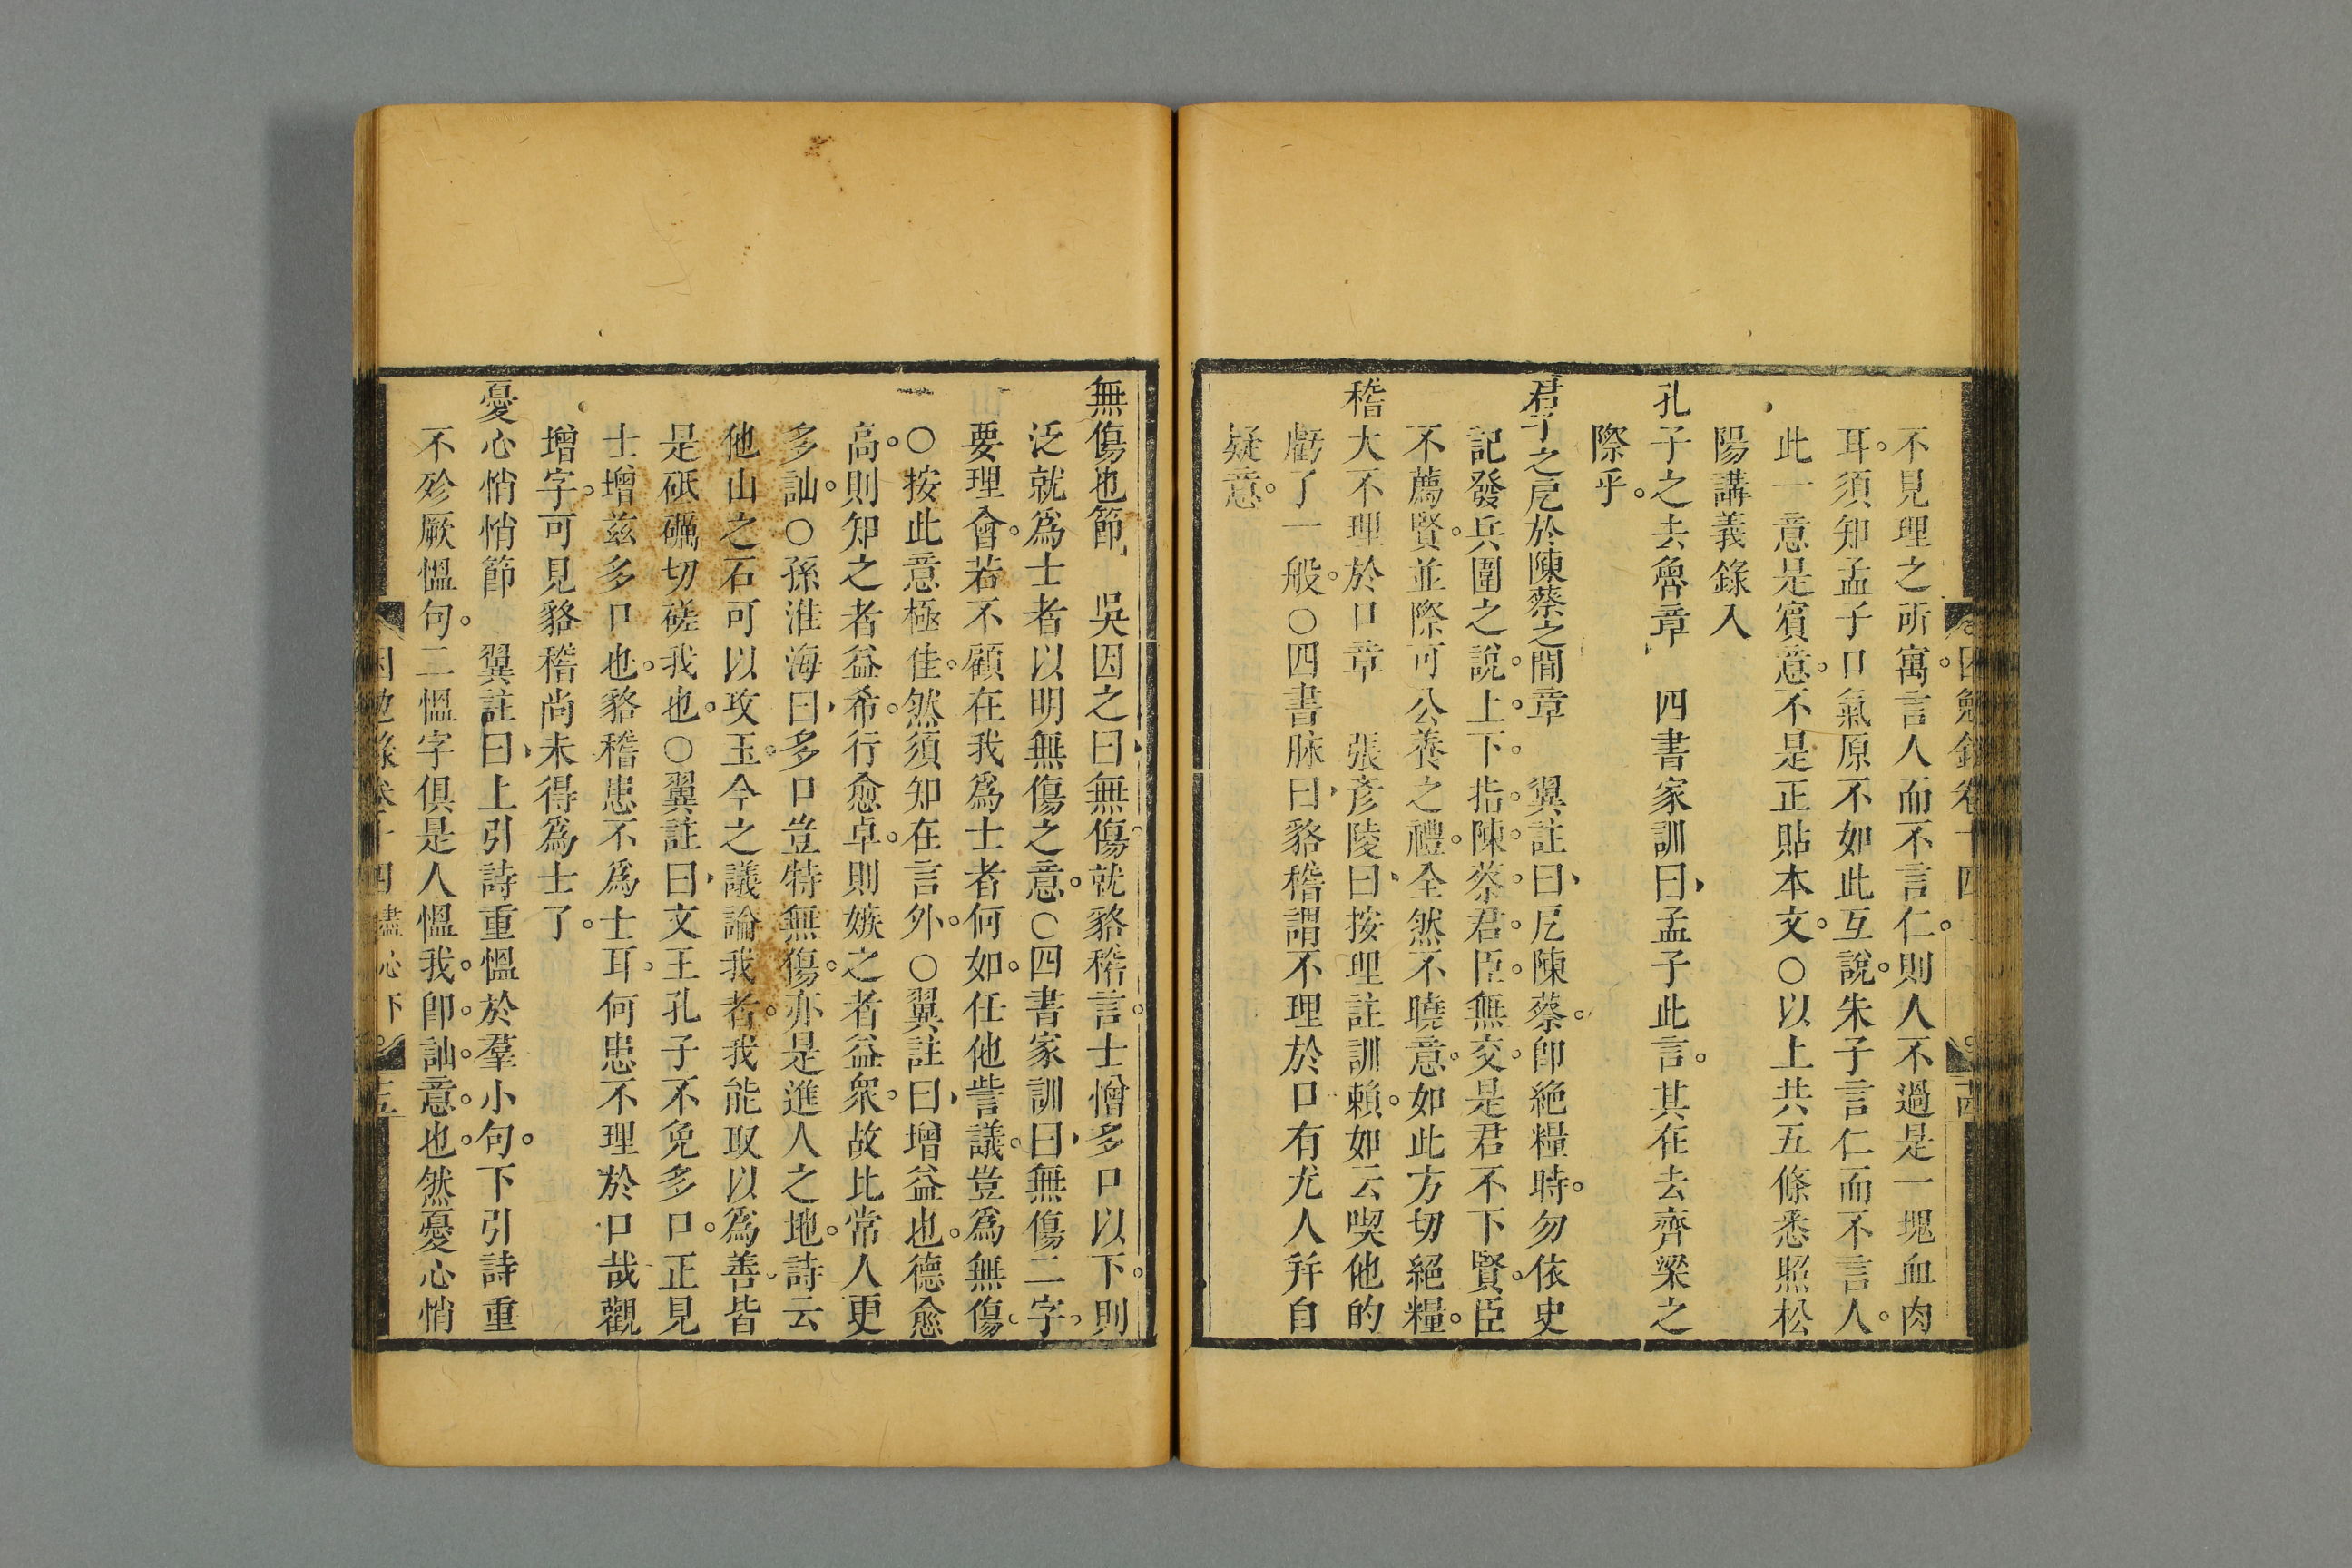 不見理之所寓。言人而不言仁。則人不過是一塊血肉
耳。須知孟子口氣原不如此互說。朱子言仁而不言人。
此一意是賓意。不是正貼本文。○以上共五條悉照松
陽講義錄入
孔子之去魯章　四書家訓曰孟子此言。其在去齊梁之
際乎。
君子之戹於陳蔡之閒章　翼註曰戹陳蔡。卽絕糧時。勿依史
記發兵圍之說。上。下。指。陳。蔡。君。臣。無交。是君不下賢。臣
不薦賢。並際可公養之禮。全然不曉意。如此方切絕糧。
稽大不理於口章　張彥陵曰按理註訓賴。如云喫他的
虧了一般。○四書脉曰貉稽謂不理於口有尤人幷自
疑意。
無傷也節　吳因之曰無傷。就貉稽言。士憎多口以下。則
泛就爲士者以明無傷之意。○四書家訓曰無傷二字。
要理會。若不顧在我爲士者何如。任他訾議。豈爲無傷。
○按此意極佳。然須知在言外。○翼註曰增益也。德愈
高。則知之者益希。行愈卓。則嫉之者益衆。故比常人更
多訕。○孫淮海曰多口豈特無傷。亦是進人之地。詩云
他山之石可以攻玉。今之議論我者。我能取以爲善皆
是砥礪切磋我也。○翼註曰文王孔子不免多口。正見
士增兹多口也。貉稽患不爲士耳。何患不理於口哉觀
增字。可見貉稽尚未得爲士了。
憂心悄悄節　翼註曰上引詩重慍於羣小句。下引詩重
不殄厥慍句。二慍字俱是人慍我。卽。訕。意。也。然憂心悄
困勉錄卷十四
困勉錄卷十四 盡心下